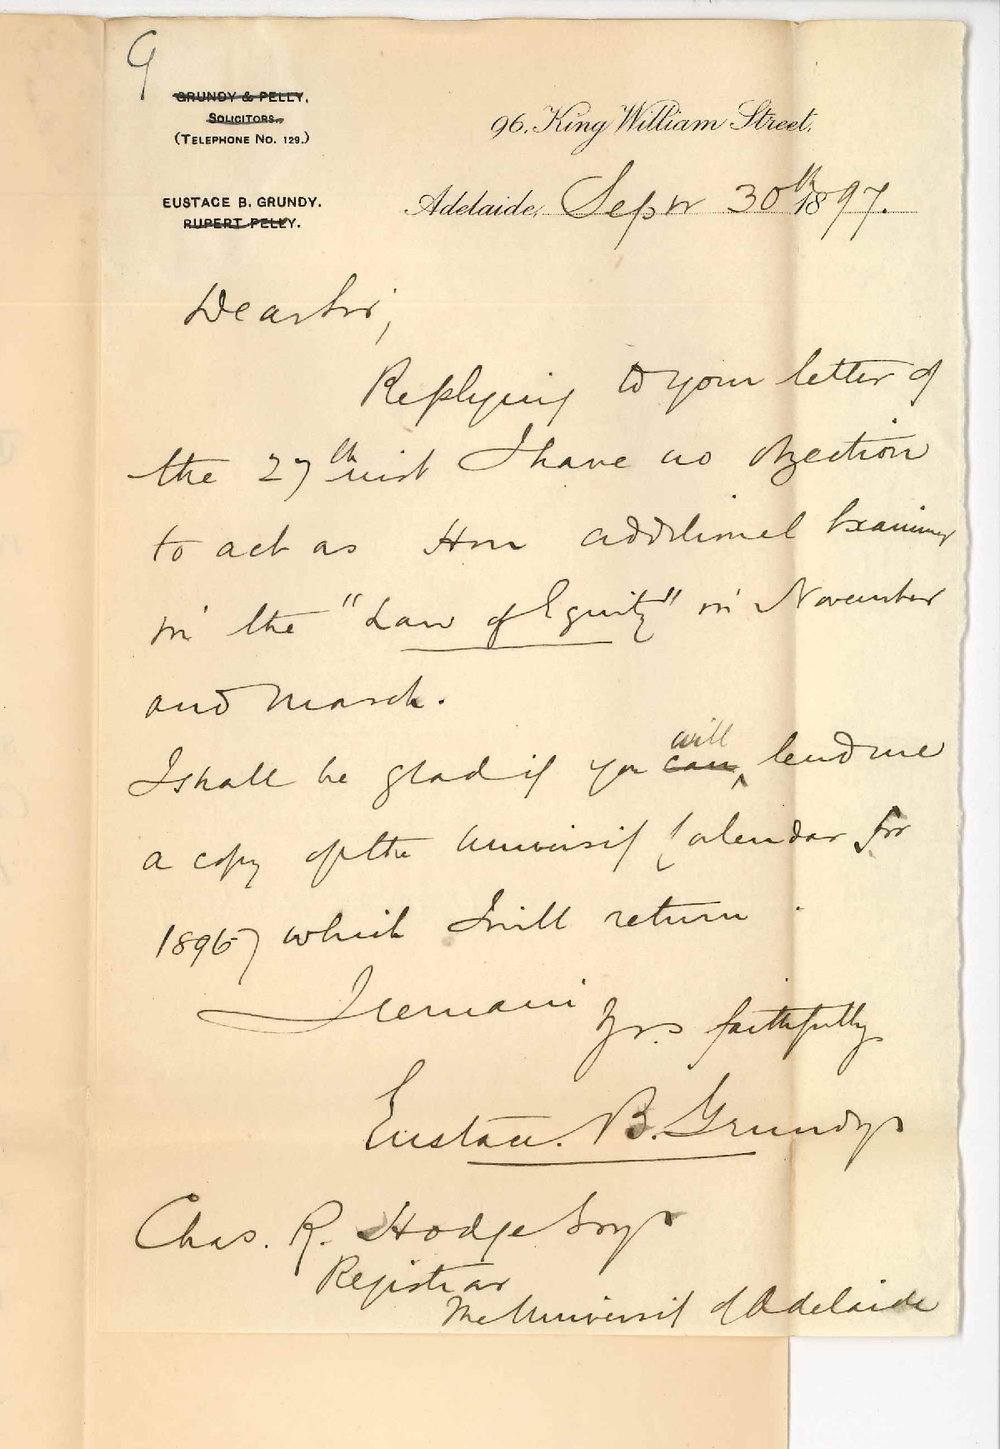 G
GRUNDY & PELLY,
SOLICITORS.
(TELEPHONE NO. 129.)
EUSTACE B. GRUNDY.
RUPERT PELLY.
96, King William Street,
Adelaide, Sepr 30th 1897.
Dear Sir,
Replying to your letter of
the 27th inst I have no objection
to act as Hon additional Examiner
in the "Law of Equity" in November
and March.
I shall be glad if you can will lend me
a copy of the University Calendar for
which I will return.
I remain yrs faithfully
Eustace. B. Grundy
Chas. R. Hodge Esqr
Registrar
The University of Adelaide